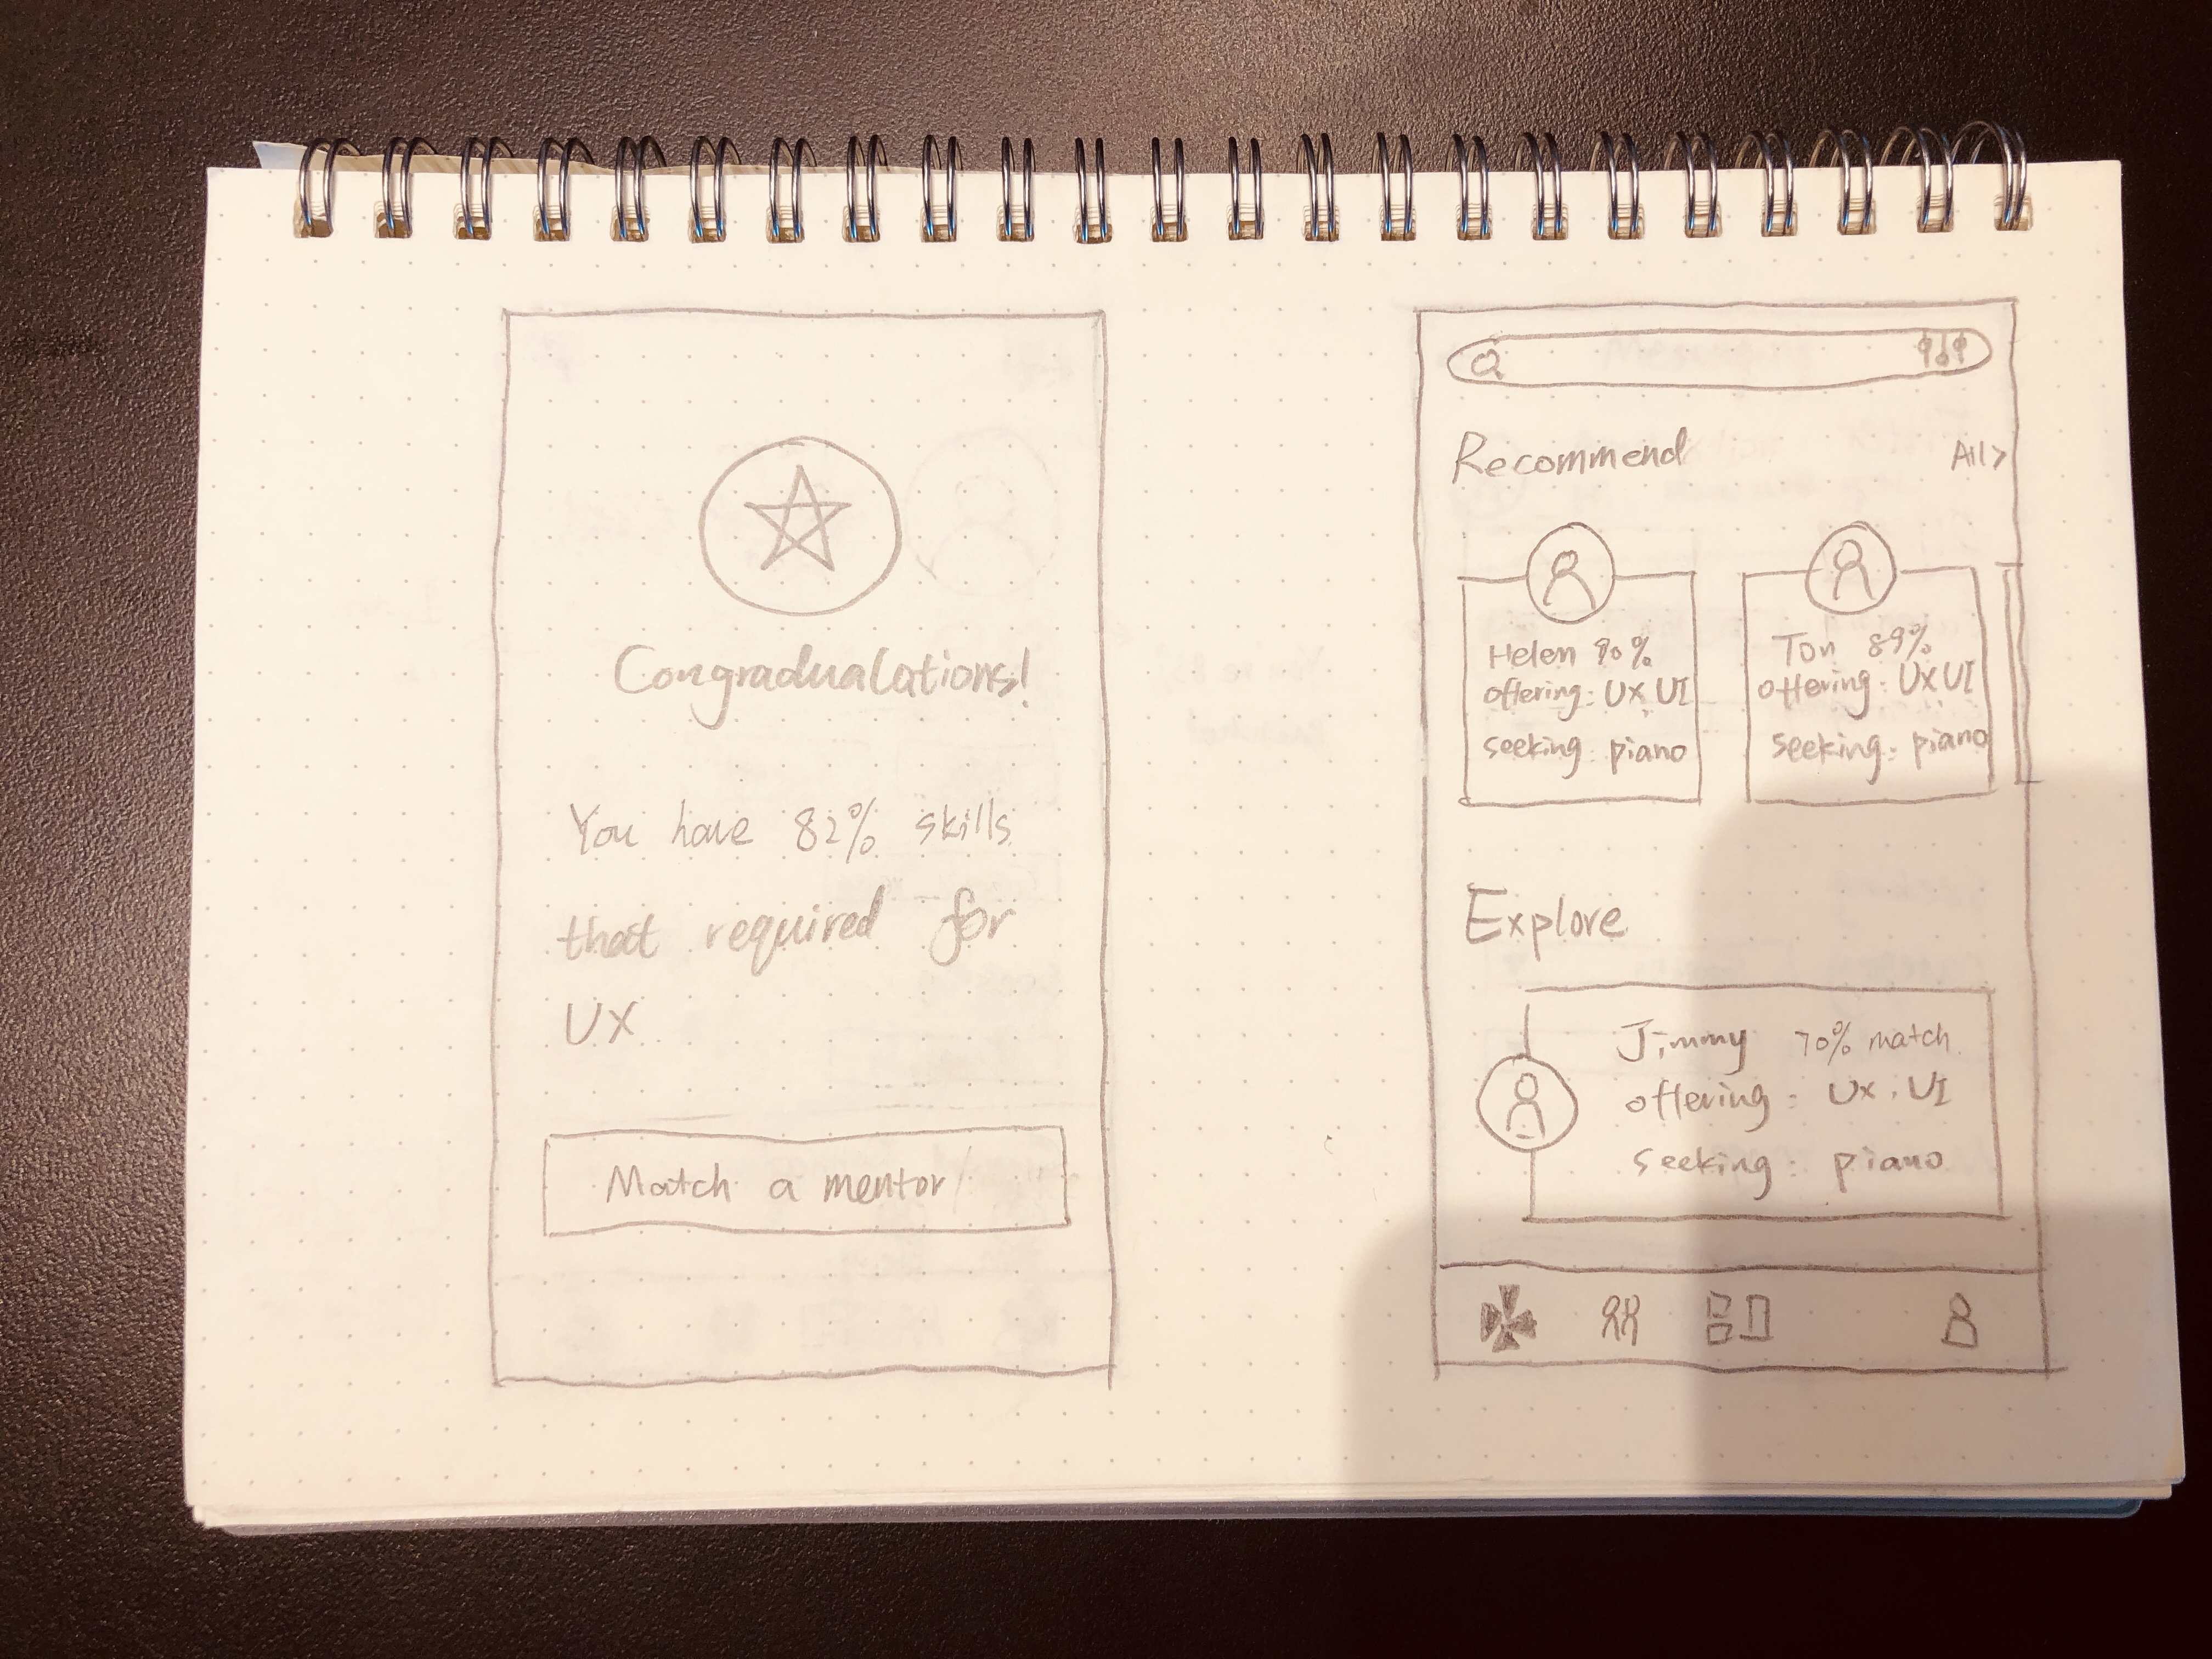 Congradualations!
You have 82% skills
that required for
UX
Match a mentor
Recommend
All >
Helen 90%
offering: UX, UI
seeking: piano
Ton 89%
offering: UX, UI
seeking: piano
Explore
Jimmy 70% match
offering: UX, UI
seeking: piano